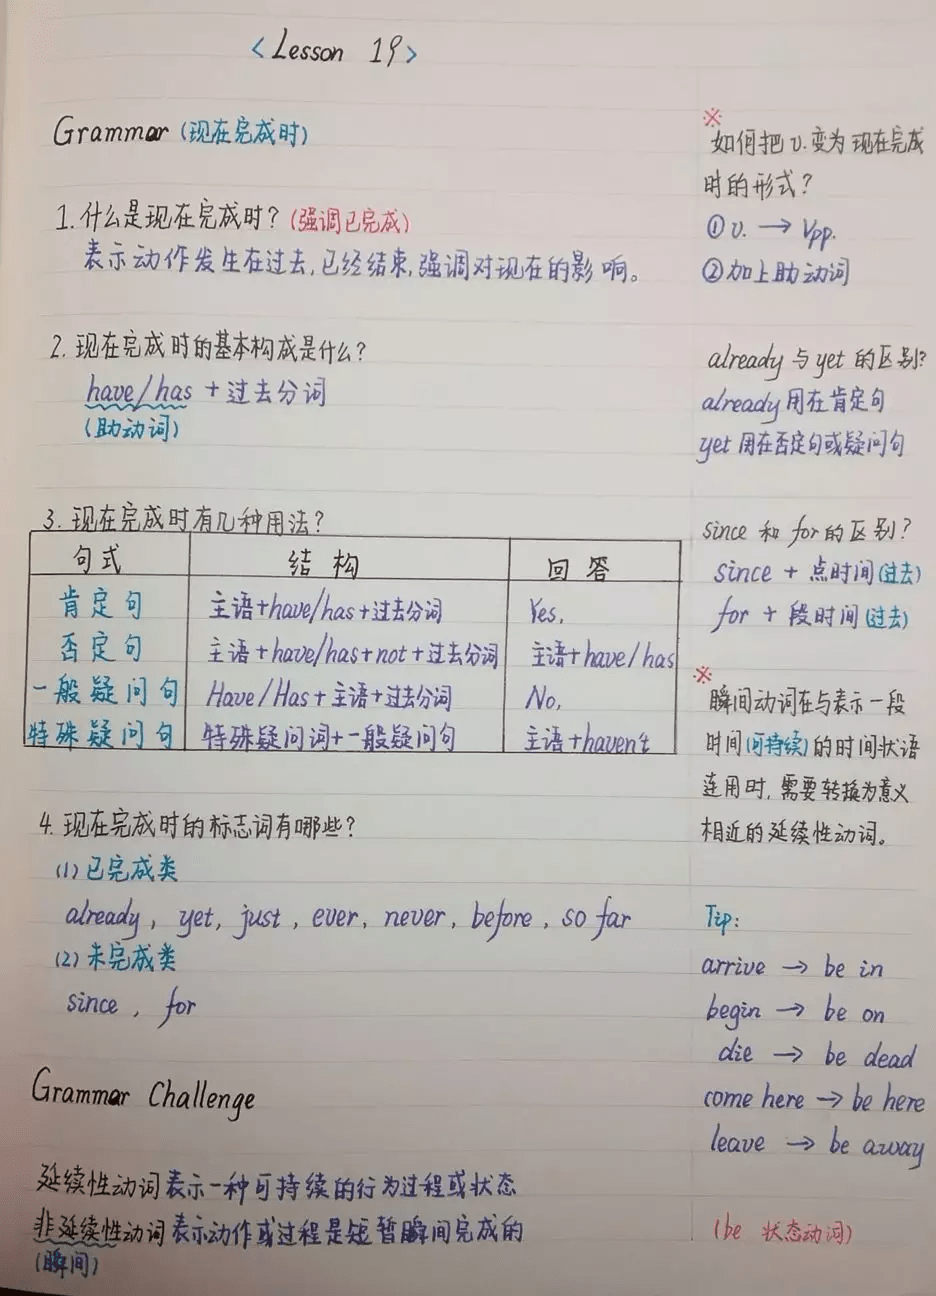 <Lesson 19>
Grammar (现在完成时)
1. 什么是现在完成时? (强调已完成)
表示动作发生在过去,已经结束,强调对现在的影响。
2. 现在完成时的基本构成是什么?
have/has + 过去分词
(助动词)
3. 现在完成时有几种用法?
句式 结构 回答
肯定句 主语+have/has+过去分词 Yes,
否定句 主语+have/has+not+过去分词 主语+have/has
一般疑问句 Have/Has+主语+过去分词 No,
特殊疑问句 特殊疑问词+一般疑问句 主语+haven't
4. 现在完成时的标志词有哪些?
(1) 已完成类
already, yet, just, ever, never, before, so far
(2) 未完成类
since, for
Grammar Challenge
延续性动词表示一种可持续的行为过程或状态
非延续性动词表示动作或过程是短暂瞬间完成的
(瞬间)
※
如何把v.变为现在完成
时的形式?
① v. → Vpp.
② 加上助动词
already 与 yet 的区别?
already 用在肯定句
yet 用在否定句或疑问句
since 和 for 的区别?
since + 点时间(过去)
for + 段时间(过去)
※
瞬间动词在与表示一段
时间(可持续)的时间状语
连用时, 需要转换为意义
相近的延续性动词。
Tip:
arrive → be in
begin → be on
die → be dead
come here → be here
leave → be away
(be 状态动词)